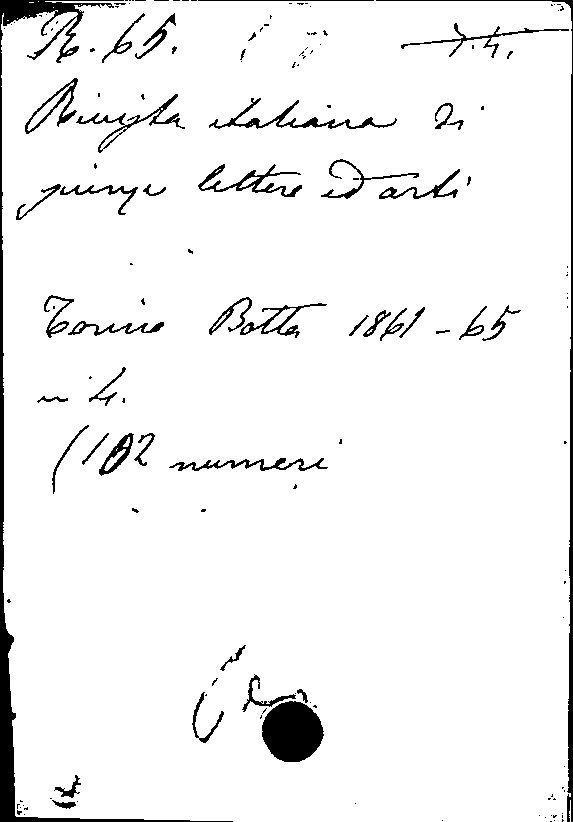 R. 65. 7.4.
Rivista italiana di
scienze lettere ed arti
Torino Botta 1861-65
in 4.
(102 numeri